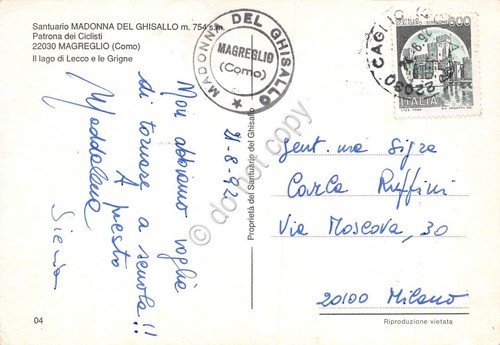 Santuario MADONNA DEL GHISALLO m. 754 s.m.
Patrona dei Ciclisti
22030 MAGREGLIO (Como)
Il lago di Lecco e le Grigne
MADONNA DEL GHISALLO
MAGREGLIO
(Como)
22030 CAGLIO
500
ITALIA
Non abbiamo voglia
di tornare a scuola!!
A presto
Maddalena
21-8-92
Proprietà del Santuario del Ghisallo
do not copy
Gent.ma Sig.ra
Carla Ruffini
Via Moscova, 30
20100 Milano
04
Riproduzione vietata